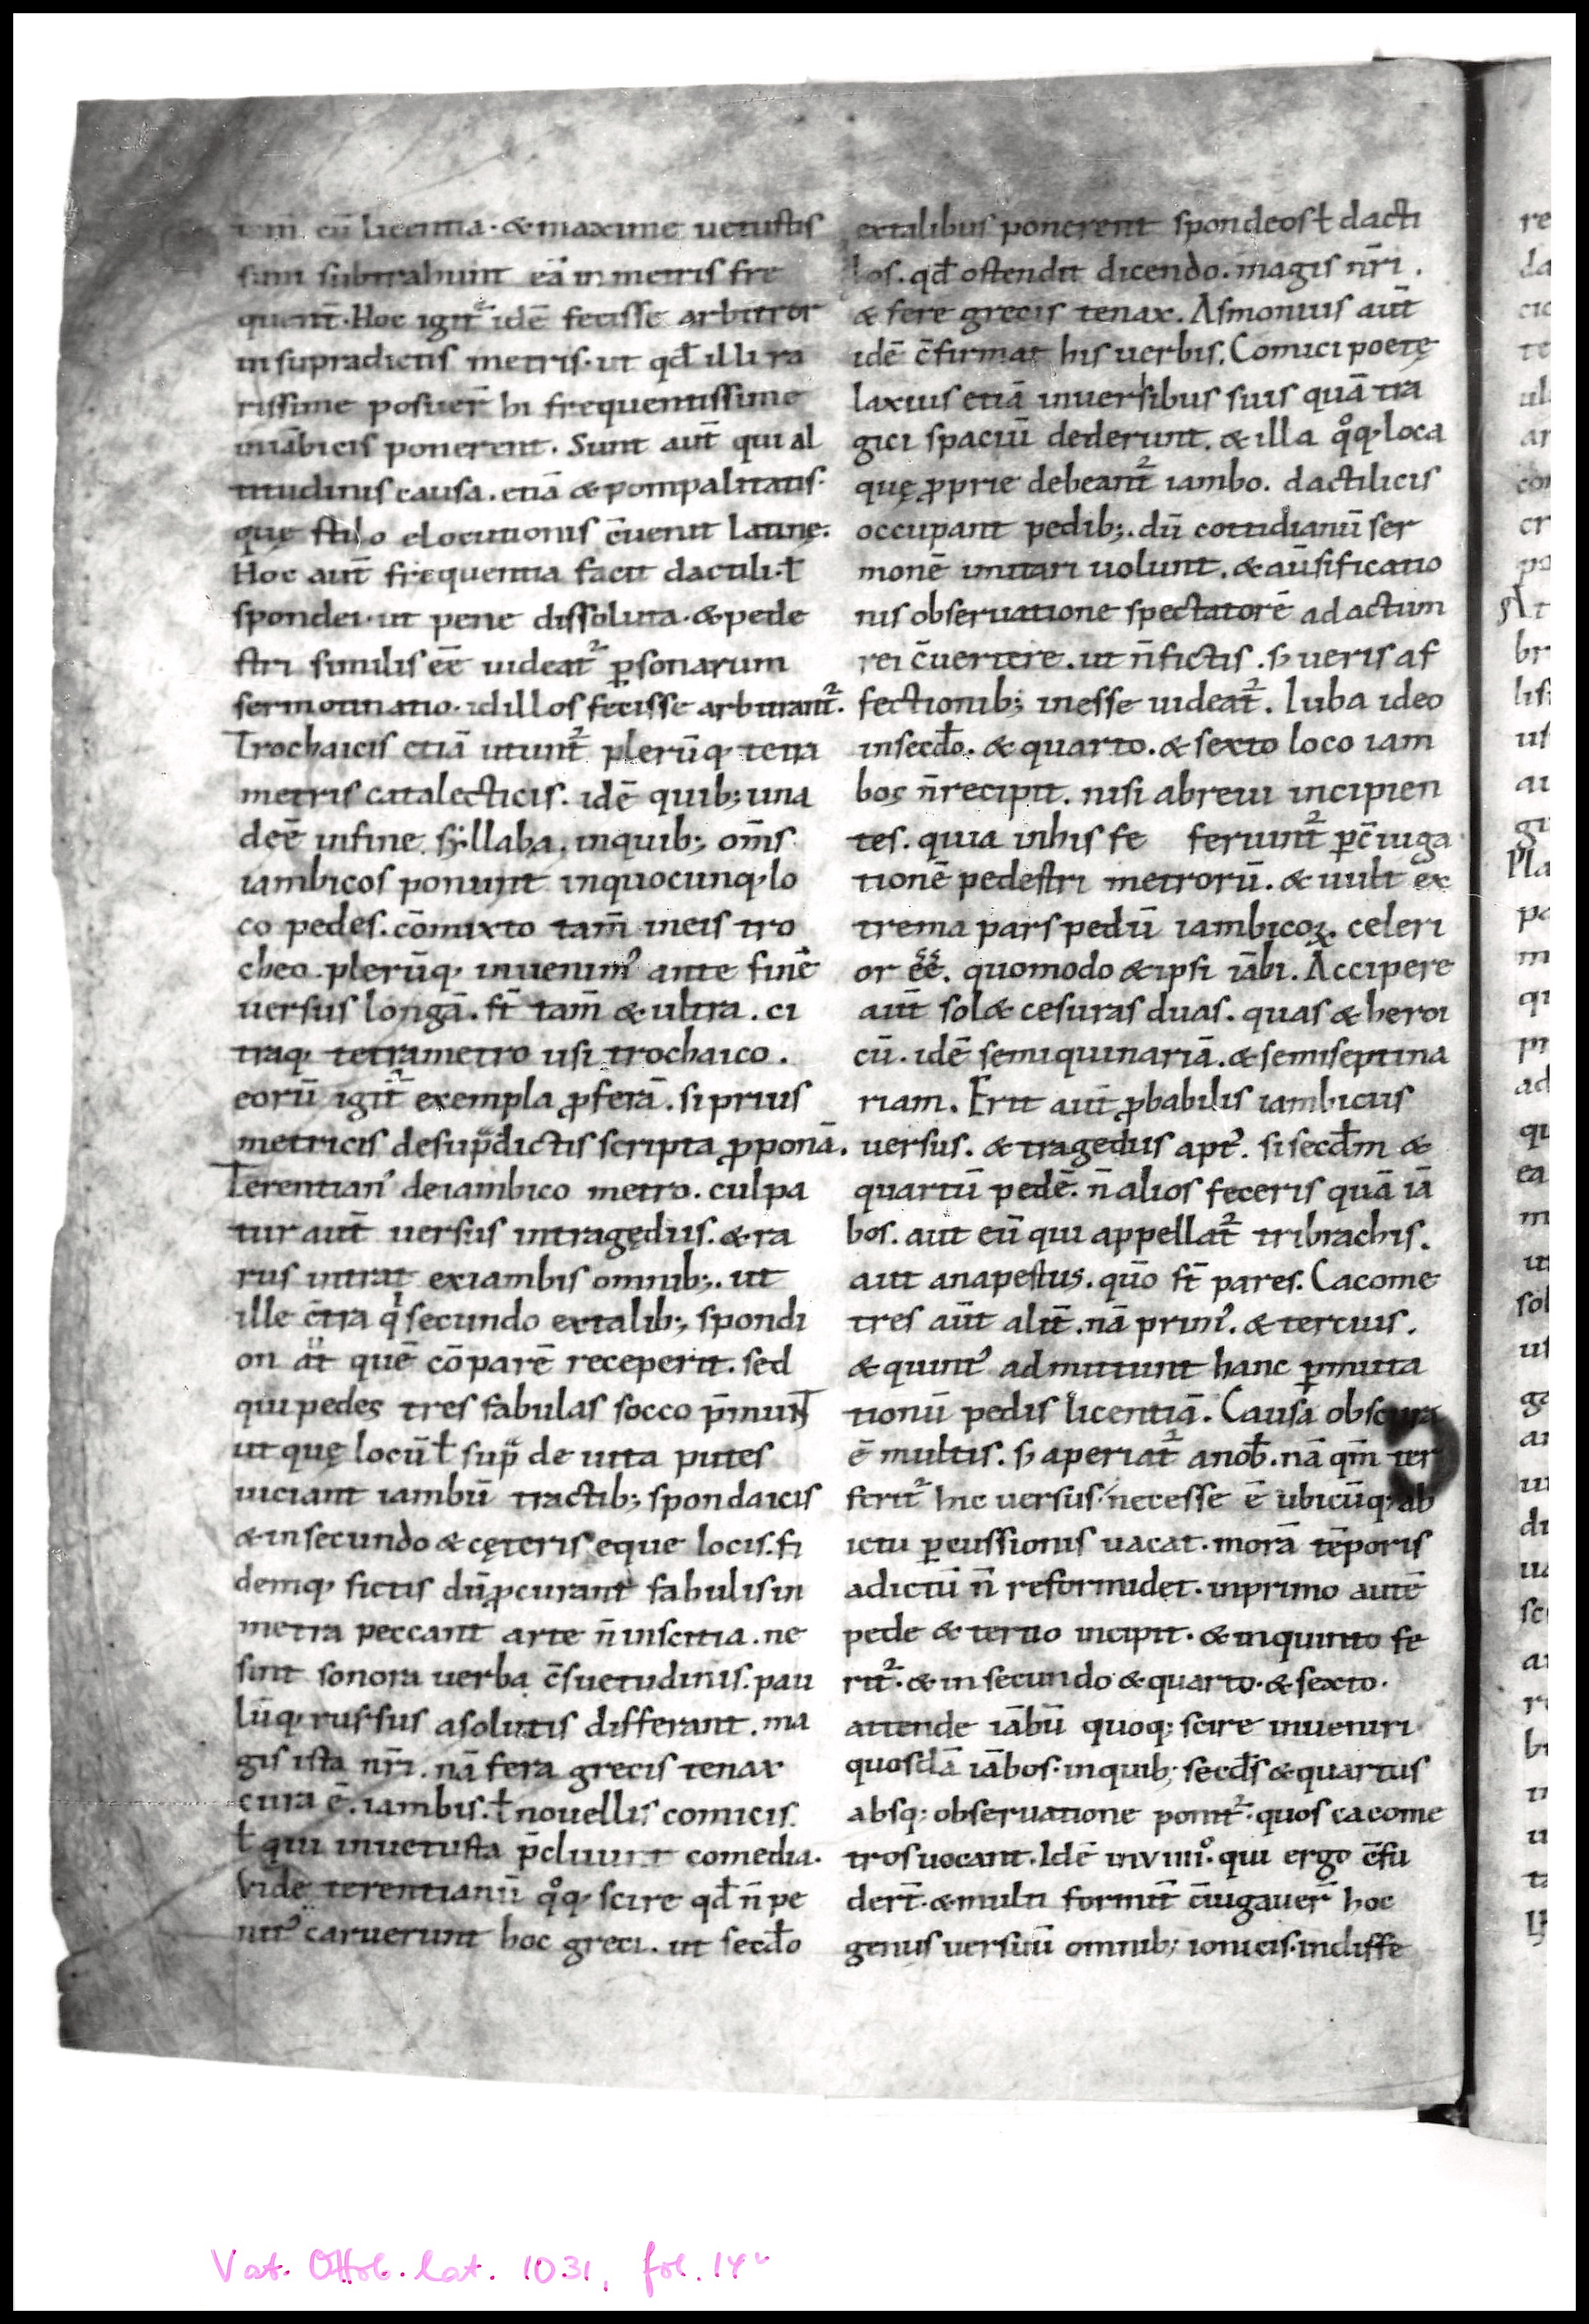 tem cū licentia. &maxime uetustis
simi subtrahunt eā in metris fre
quent̄. Hoc igit̄ idē fecisse arbitror
in supradictis metris. ut qđ illi ra
rissime posuer̄ hi frequentissime
iniābicis ponerent. Sunt aut̄ qui al
titudinis causa. etiā & pompalitatis.
quę stilo elocutionis c̄uenit latinę.
Hoc aut̄ frequentia facit dactili. ł
spondei. ut pene dissoluta. &pede
stri similis eē uideat̄² p̱sonarum
sermotinatio. id illos fecisse arbitrant̄².
Trochaicis etiā utunt̄² plerūq; tetra
metris catalecticis. idē quib; una
deē infine syllaba. inquib; om̄s
iambicos ponunt inquocunq; lo
co pedes. cōmixto tam̄ ineis tro
cheo. plerūq; inuenim᾽ ante finē
uersus longā. st̄ tam̄ & ultra. ci
traq; tetrametro usi trochaico.
eorū igit̄² exempla ꝓferā. si prius
metricis desup̄dictis scripta ꝓponā.
Terentian᾽ deiambico metro. culpa
tur aut̄ uersus intragędiis. &ra
rus intrat exiambis omnib;. ut
ille c̄tra qͥ secundo extalib; spondi
on at quē cōparē receperit. sed
qui pedes tres fabulas socco p̄muNT
ut quę locūł sup̄ de uita putes
uiciant iambū tractib; spondaicis
&in secundo & cęteris eque locis. fi
demq; fictis dūꝓcurant fabulis in
metra peccant arte n̄ inscitia. ne
sint sonora uerba c̄suetudinis. pau
lūq; russus asolutis differant. ma
gis ista nr̄i. nā fera grecis tenax
cura ē. iambis. ł nouellis comicis.
ł qui inuetusta p̄cluunt comedia.
Vide terentianū qͦq; scire qđ n̄ pe
nit᾽ caruerunt hoc greci. ut secđo
extalibus ponerent spondeos ł dacti
los. qđ ostendit dicendo. magis nr̄i.
& fere grecis tenax. Asmonius aut̄
idē c̄firmat his uerbis. Comici poetę
laxius etiā inuersibus suis quā tra
gici spaciū dederunt. & illa qͦq; loca
quę ꝓprie debeant̄² iambo. dactilicis
occupant pedib;. dū cottidianū ser
monē imitari uolunt. & aūsificatio
nis obseruatione spectatorē ad actum
rei c̄uertere. ut n̄ fictis. s; ueris af
fectionib; inesse uideat̄². Iuba ideo
insecđo. & quarto. & sexto loco iam
bos n̄ recipit. nisi abreui incipien
tes. quia inhis fe feriunt̄² p̱c̄iuga
tionē pedestri metrorū. & uult ex
trema pars pedū iambicoꝝ. celeri
or eē. quomodo & ipsi iābi. Accipere
aut̄ sol& cesuras duas. quas & heroi
cū. idē semiquinariā. & semiseptina
riam. Erit aut̄ ꝓbabilis iambicus
uersus. & tragediis apt᾽. si secđm &
quartū pedē. n̄ alios feceris quā iā
bos. aut eū qui appellat̄² tribrachis.
aut anapestus. quō st̄ pares. Cacome
tres aut̄ aliт̄. nā prim᾽. & tercius.
& quint᾽ admittunt hanc p̱muta
tionū pedis licentiā. Causa obscura
ē multis. s; aperiat̄² anob̄. nā qm̄ ter
ferit̄² hic uersus. necesse ē ubicūq; ab
ictu p̱cussionis uacat. morā tēporis
adictū n̄ reformidet. inprimo autē
pede & tertio incipit. & inquinto fe
rit̄². & in secundo & quarto. & sexto.
attende iābū quoq; scire inueniri
quosdā iābos. inquib; secđs & quartus
absq; obseruatione ponit̄². quos cacome
tros uocant. Idē inviiiiͦ. qui ergo c̄fu
dert̄. & multi formit̄ c̄iugauer̄ hoc
genus uersuū omnib; ionicis. indiffe
Vat. Ottob. lat. 1031, fol. 14ᵛ